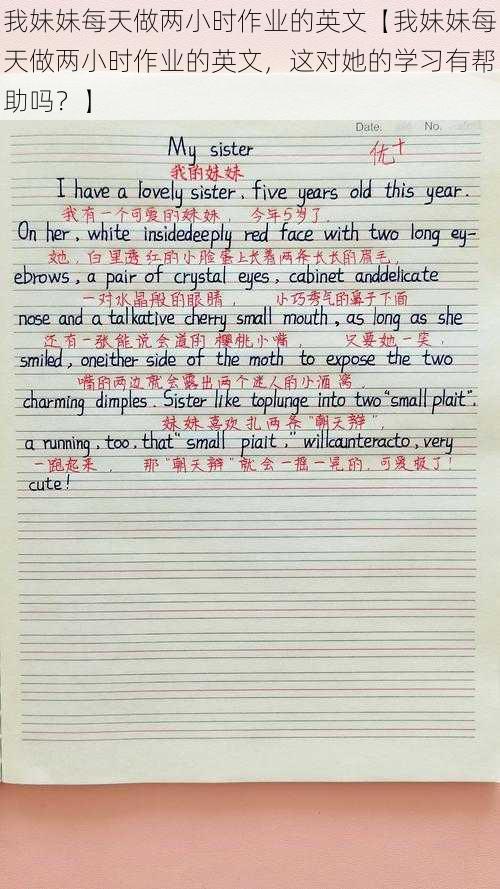 我妹妹每天做两小时作业的英文【我妹妹每
天做两小时作业的英文，这对她的学习有帮
助吗？】
Date. No.
My sister
优+
我的妹妹.
I have a lovely sister, five years old this year.
我有一个可爱的妹妹， 今年5岁了.
On her, white insidedeeply red face with two long ey-
她，白里透红的小脸蛋上长着两条长长的眉毛，
ebrows, a pair of crystal eyes, cabinet anddelicate
一对水晶般的眼睛， 小巧秀气的鼻子下面
nose and a talkative cherry small mouth, as long as she
还有一张能说会道的樱桃小嘴， 只要她一笑，
smiled, oneither side of the moth to expose the two
嘴的两边就会露出两个迷人的小酒窝，
charming dimples. Sister like toplunge into two "small plait".
妹妹喜欢扎两条"朝天辫"，
a running, too, that "small piait," willcaunteracto, very
一跑起来， 那"朝天辫"就会一摇一晃的.可爱极了！
cute!